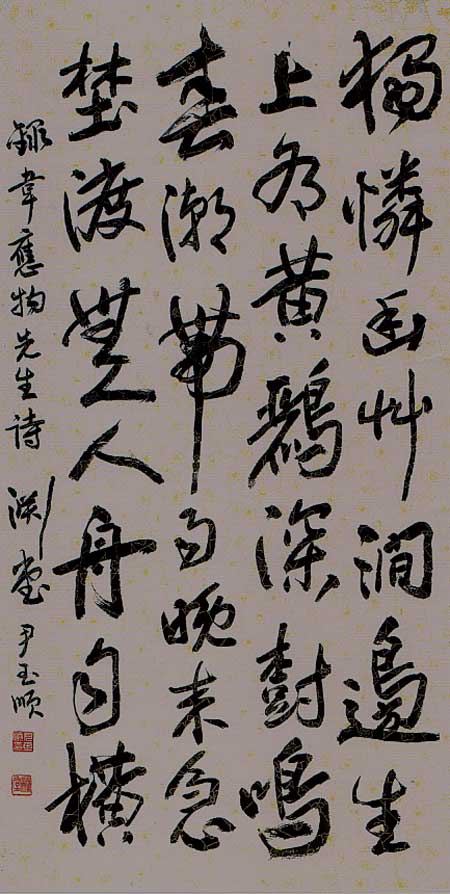 獨憐幽艸澗邊生
上有黃鸝深樹鳴
春潮帶雨晚來急
埜渡無人舟自橫
錄韋應物先生詩 淵堂 尹玉順